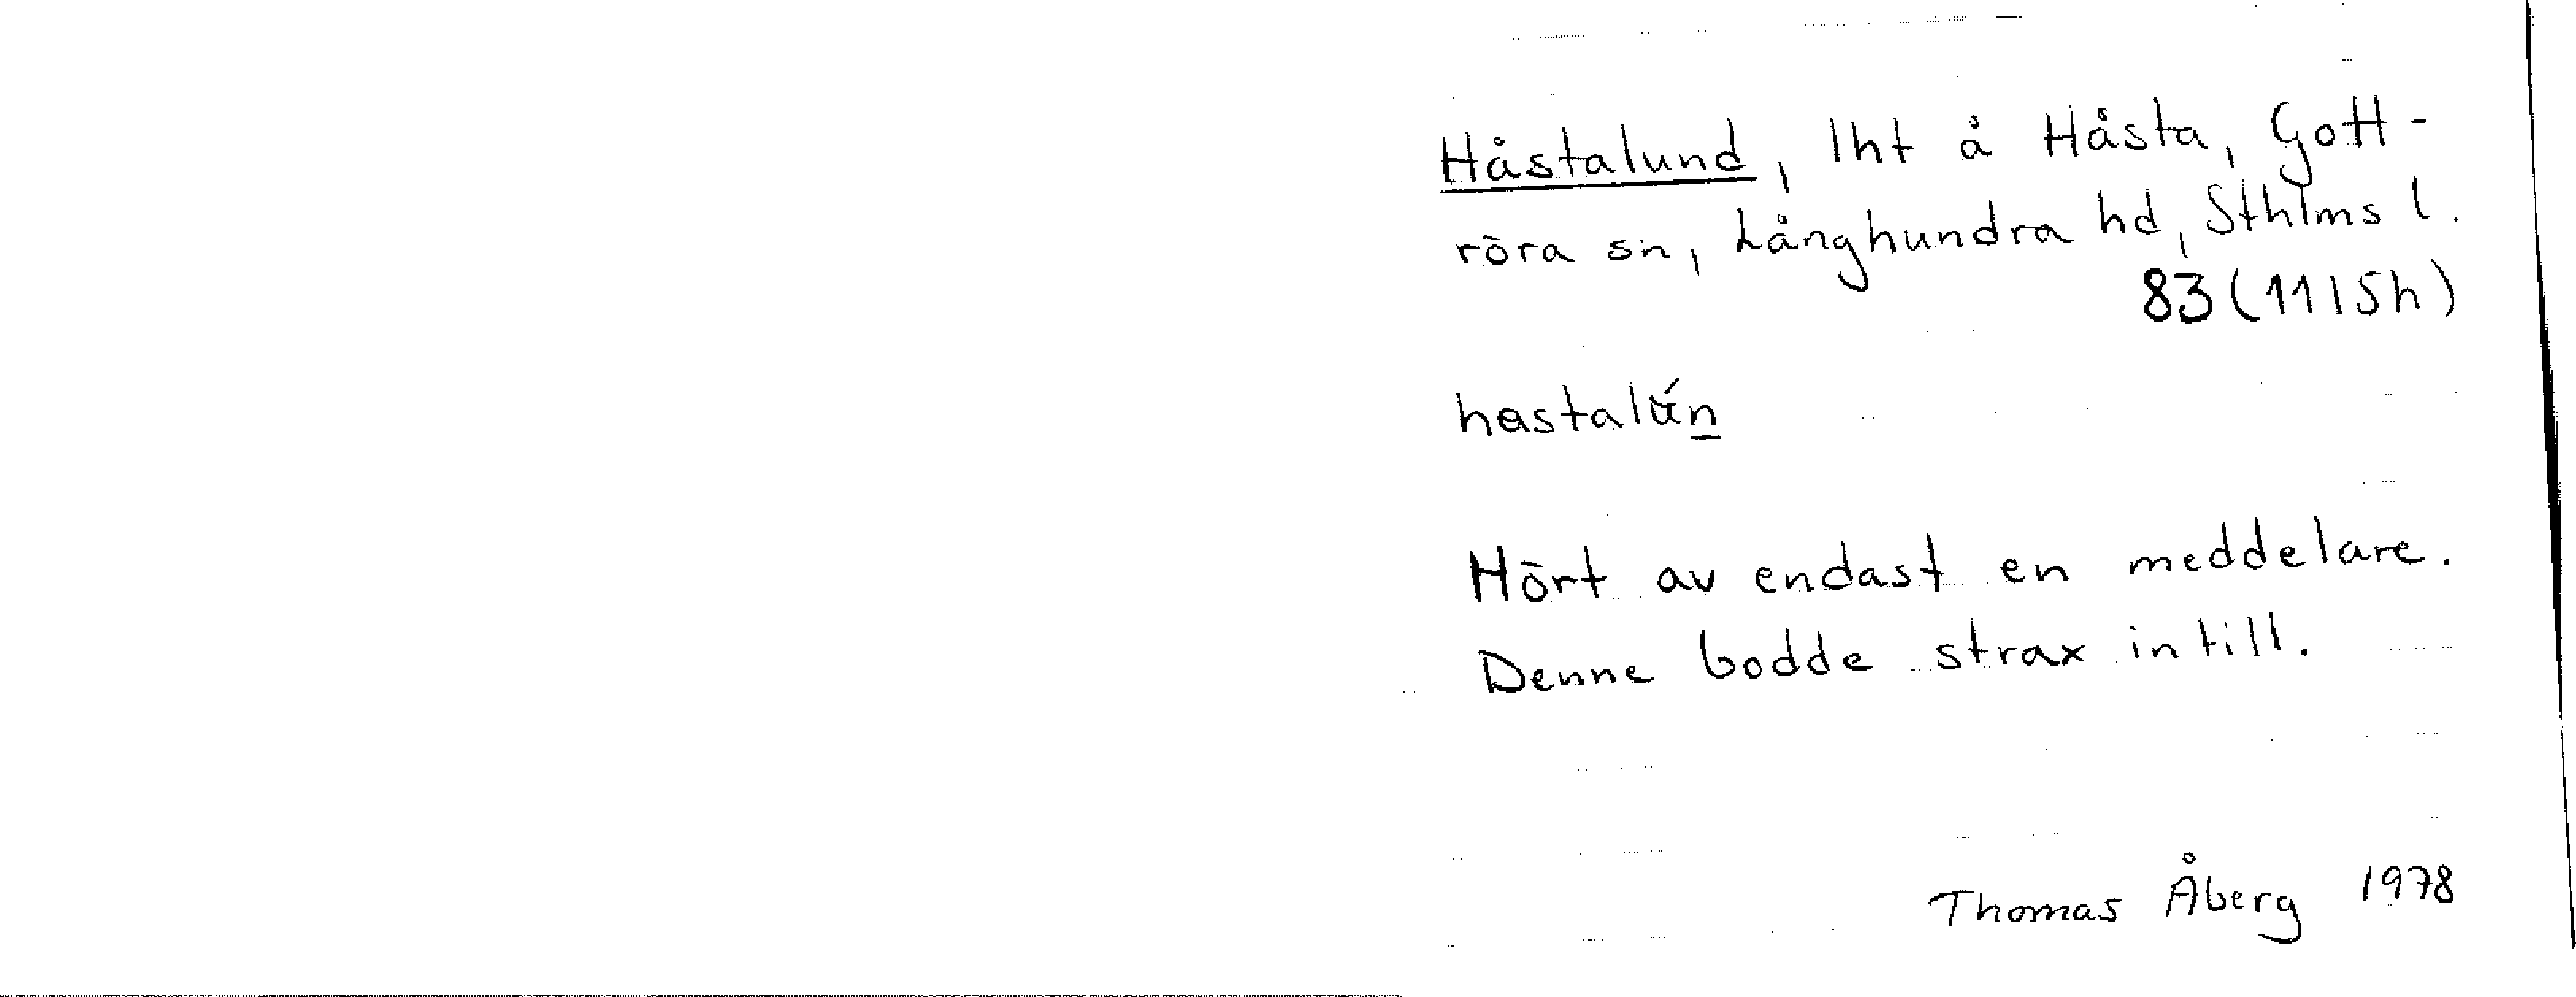 Håstalund, lht å Håsta, Gott-
röra sn, Långhundra hd, Sthlms l.
83 (11I5h)
Hört av endast en meddelare.
Denne bodde strax intill.
Thomas Åberg 1978